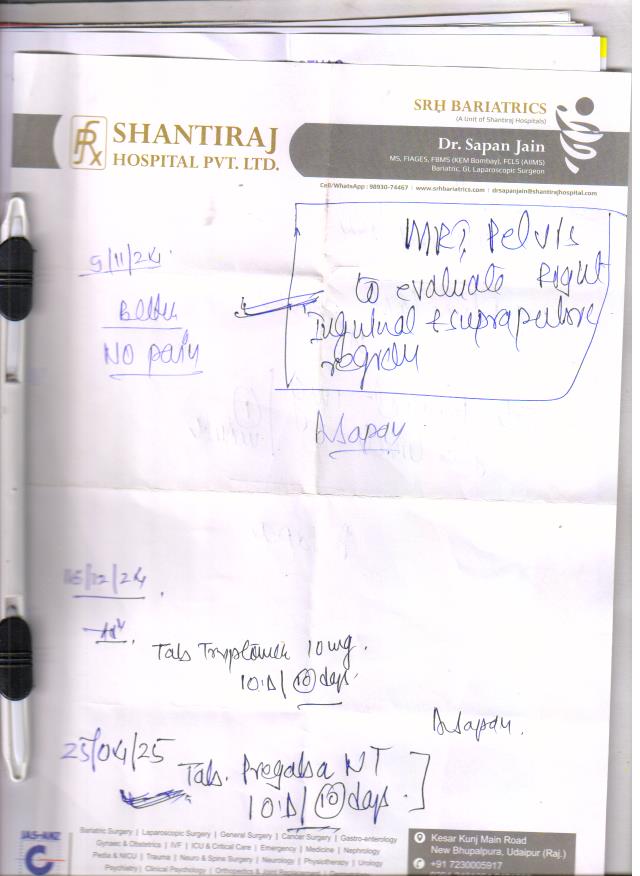 SRH BARIATRICS
(A Unit of Shantiraj Hospitals)
SHANTIRAJ
HOSPITAL PVT. LTD.
Dr. Sapan Jain
MS, FIAGES, FBMS (KEM Bombay), FCLS (AIIMS)
Bariatric, GI, Laparoscopic Surgeon
Cell/WhatsApp : 98930-74467 | www.srhbariatrics.com | drsapanjain@shantirajhospital.com
MRI Pelvis
to evaluate Right
Inguinal + suprapubic
region
5/11/24
Better
NO pain
15/12/24
Adv
Tab 10 mg.
10D / 10 days
25/04/25
Tab. Pregaba NT
10D / 10 days.
Bariatric Surgery | Laparoscopic Surgery | General Surgery | Cancer Surgery | Gastro-enterology
Gynaec & Obstetrics | IVF | ICU & Critical Care | Emergency | Medicine | Nephrology
Pedia & NICU | Trauma | Neuro & Spine Surgery | Neurology | Physiotherapy | Urology
Psychiatry | Clinical Psychology | Orthopedics & Joint
Kesar Kunj Main Road
New Bhupalpura, Udaipur (Raj.)
+91 7230005917
JAS-ANZ